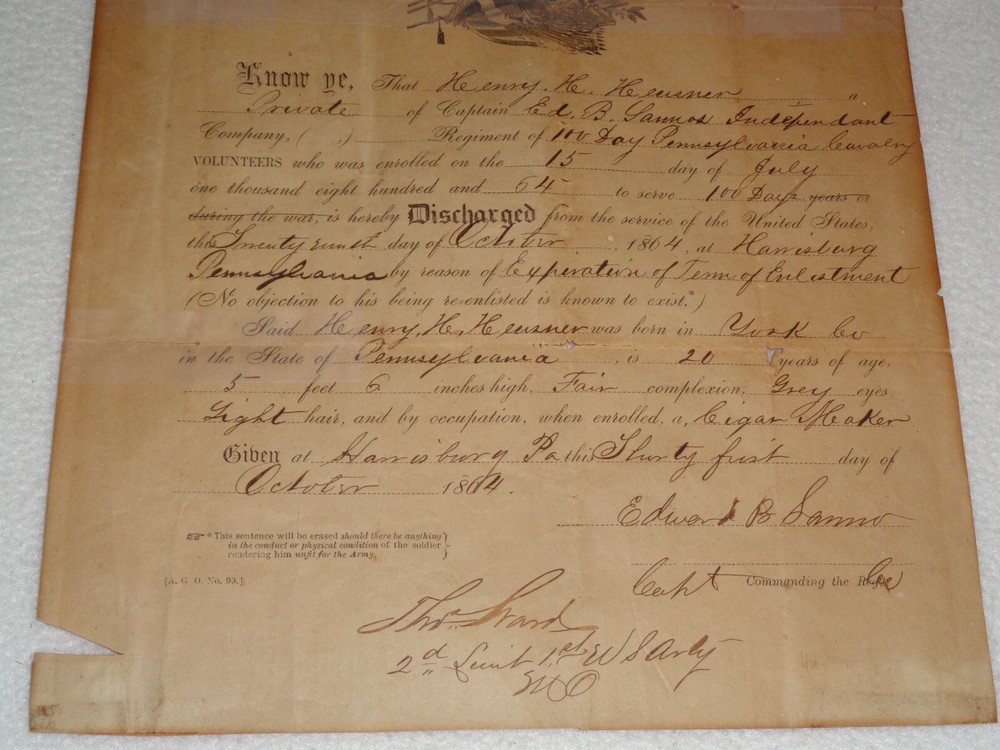 Know ye, That Henry. H. Heusner a
Private of Captain Ed. B. Sannos Independant
Company, ( , ) Regiment of 100 Day Pennsylvania Cavalry
VOLUNTEERS who was enrolled on the 15 day of July
one thousand eight hundred and 64 to serve 100 Days years or
during the war, is hereby Discharged from the service of the United States,
this Twenty day of October, 1864, at Harrisburg
Pennsylvania by reason of Expiration of Term of Enlistment
(No objection to his being re-enlisted is known to exist.*)
Said Henry. H. Heusner was born in York Co
in the State of Pennsylvania, is 20 years of age,
5 feet 6 inches high, Fair complexion, Grey eyes,
Light hair, and by occupation, when enrolled, a Cigar Maker
Given at Harrisburg Pa this Thirty first day of
October 1864.
Edward B Sanno
☞ * This sentence will be erased should there be anything
in the conduct or physical condition of the soldier
rendering him unfit for the Army.
[A. G. O. No. 99.]
Capt Commanding the Co
Thos. Ward
2d Lieut 1st U S Arty
M O